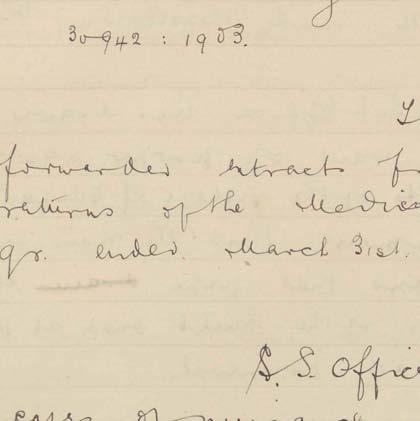 30942 : 1903.
forwarded extracts
returns of the Medic
qr. ended March 31st.
S. S. Offic